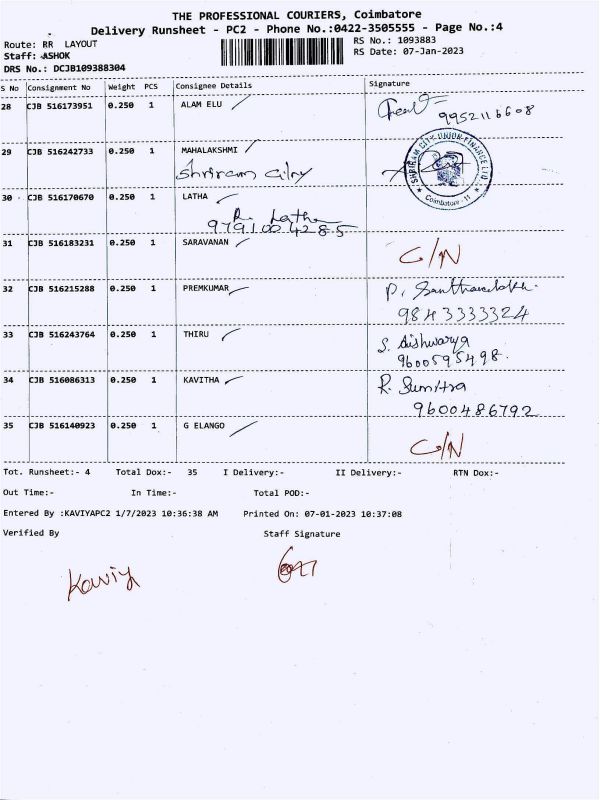 THE PROFESSIONAL COURIERS, Coimbatore
Delivery Runsheet - PC2 - Phone No.:0422-3505555 - Page No.:4
Route: RR LAYOUT
RS No.: 1093883
Staff: ASHOK
RS Date: 07-Jan-2023
DRS No.: DCJB109388304
S No Consignment No Weight PCS Consignee Details Signature
28 CJB 516173951 0.250 1 ALAM ELU
9952116608
29 CJB 516242733 0.250 1 MAHALAKSHMI
Shriram City
SHRIRAM CITY UNION FINANCE LTD.
Coimbatore - 11
30 CJB 516170670 0.250 1 LATHA
R. Latha
9791004285
31 CJB 516183231 0.250 1 SARAVANAN
C/N
32 CJB 516215288 0.250 1 PREMKUMAR
P.
9843333324
33 CJB 516243764 0.250 1 THIRU
S. Aishwarya
9600595498.
34 CJB 516086313 0.250 1 KAVITHA
R. Sumitra
9600486792
35 CJB 516140923 0.250 1 G ELANGO
C/N
Tot. Runsheet:- 4 Total Dox:- 35 I Delivery:- II Delivery:- RTN Dox:-
Out Time:- In Time:- Total POD:-
Entered By :KAVIYAPC2 1/7/2023 10:36:38 AM Printed On: 07-01-2023 10:37:08
Verified By Staff Signature
Kaviy